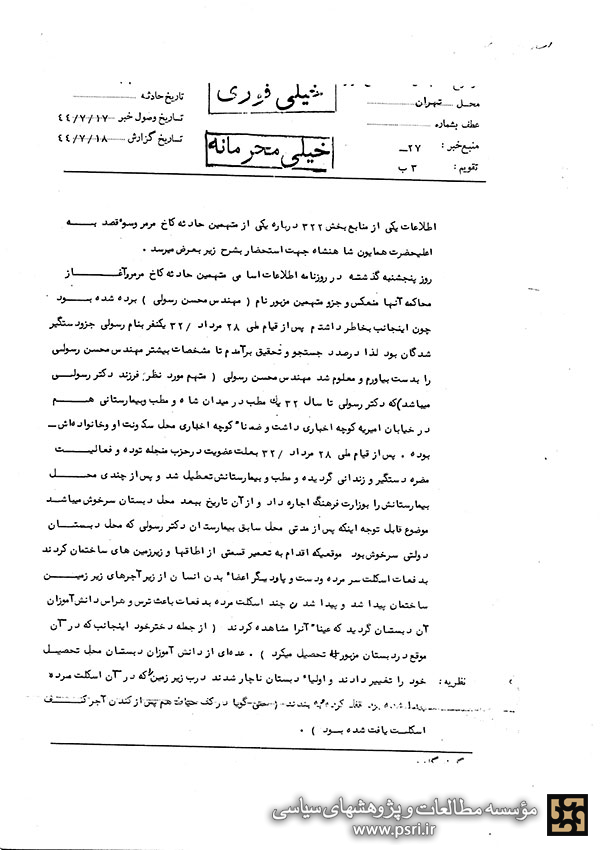 خیلی فوری
خیلی محرمانه
تاریخ حادثه
تاریخ وصول خبر ۴۴/۷/۱۷
تاریخ گزارش ۴۴/۷/۱۸
محل ــ تهران
عطف بشماره
منبع خبر : ۲۷ــ
تقویم : ۳ ب
اطلاعات یکی از منابع بخش ۳۲۲ درباره یکی از متهمین حادثه کاخ مرمر وسوء قصد بــه
اعلیحضرت همایون شاهنشاه جهت استحضار بشرح زیر بعرض میرسد .
روز پنجشنبه گذشته در روزنامه اطلاعات اسامی متهمین حادثه کاخ مرمر وآغــاز
محاکمه آنها منعکس و جزو متهمین مزبور نام ( مهندس محسن رسولی ) برده شده بــود
چون اینجانب بخاطر داشتم پس از قیام ملی ۲۸ مرداد /۳۲ یکنفر بنام رسولی جزو دستگیر
شدگان بود لذا درصدد جستجو و تحقیق برآمدم تا مشخصات بیشتر مهندس محسن رسولــی
را بدست بیاورم و معلوم شد مهندس محسن رسولی ( متهم مورد نظر فرزند دکتر رسولــی
میباشد)که دکتر رسولی تا سال ۳۲ یك مطب در میدان شاه و مطب وبیمارستانی هــم
در خیابان امیریه کوچه اخباری داشت و ضمناً کوچه اخباری محل سکونت او وخانواده‌اش ــ
بوده . پس از قیام ملی ۲۸ مرداد /۳۲ بعلت عضویت در حزب منحله توده و فعالیــت
مضره دستگیر و زندانی گردیده و مطب و بیمارستانش تعطیل شد و پس از چندی محــل
بیمارستانش را بوزارت فرهنگ اجاره داد و از آن تاریخ ببعد محل دبستان سرخوش میباشــد
موضوع قابل توجه اینکه پس از مدتی محل سابق بیمارستان دکتر رسولی که محل دبــستان
دولتی سرخوش بود موقعیکه اقدام به تعمیر قسمتی از اطاقها و زیرزمین های ساختمان کردند
بدفعات اسکلت سر مرده ودست و پا و دیگر اعضاء بدن انسان از زیر آجرهای زیر زمیــن
ساختمان پیدا شد و پیدا شدن چند اسکلت مرده بدفعات باعث ترس و هراس دانش‌آموزان
آن دبستان گردید که عیناً آنرا مشاهده کردند ( از جمله دختر خود اینجانب که در آن
موقع در دبستان مزبور تحصیل میکرد ) . عده‌ای از دانش آموزان دبستان محل تحصیــل
نظریه : خود را تغییر دادند و اولیاء دبستان ناچار شدند درب زیر زمین که در آن اسکلت مــرده
پیدا شده بود قفل کرده ببندند ( حتی گویا در کف حیاط هم پس از کندن آجر کــف
اسکلــت یافت شده بــود ) .
مؤسسه مطالعات و پژوهشهای سیاسی
www.psri.ir